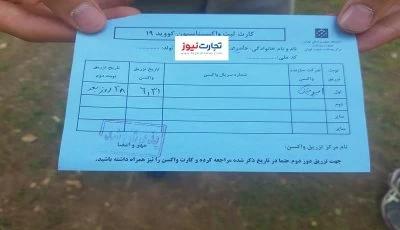 کارت ثبت واکسیناسیون کووید ۱۹
تجارت‌نیوز
نام و نام خانوادگی:
کد ملی:
نوبت
شرکت سازنده واکسن
شماره سریال واکسن
تاریخ تزریق واکسن
تاریخ تزریق نوبت دوم
اول
۶/۳۱
۲۸ روز بعد
دوم
سایر
سایر
نام مرکز تزریق واکسن:
مهر و امضا
جهت تزریق دوز دوم حتما در تاریخ ذکر شده مراجعه کرده و کارت واکسن را نیز همراه داشته باشید.